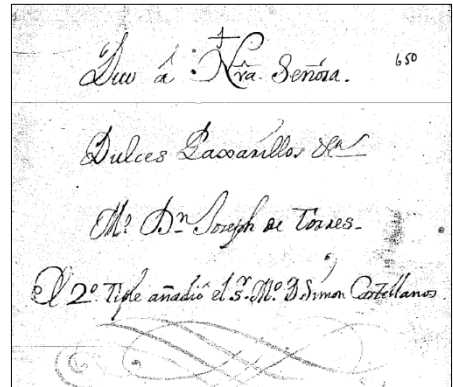 †
Duo â Nrâ. Señora. 650
Dulces Paxarillos &ª
M.º D.n Joseph de Torres.
El 2.º Tiple añadiô el S.r M.º D. Simon Castellanos